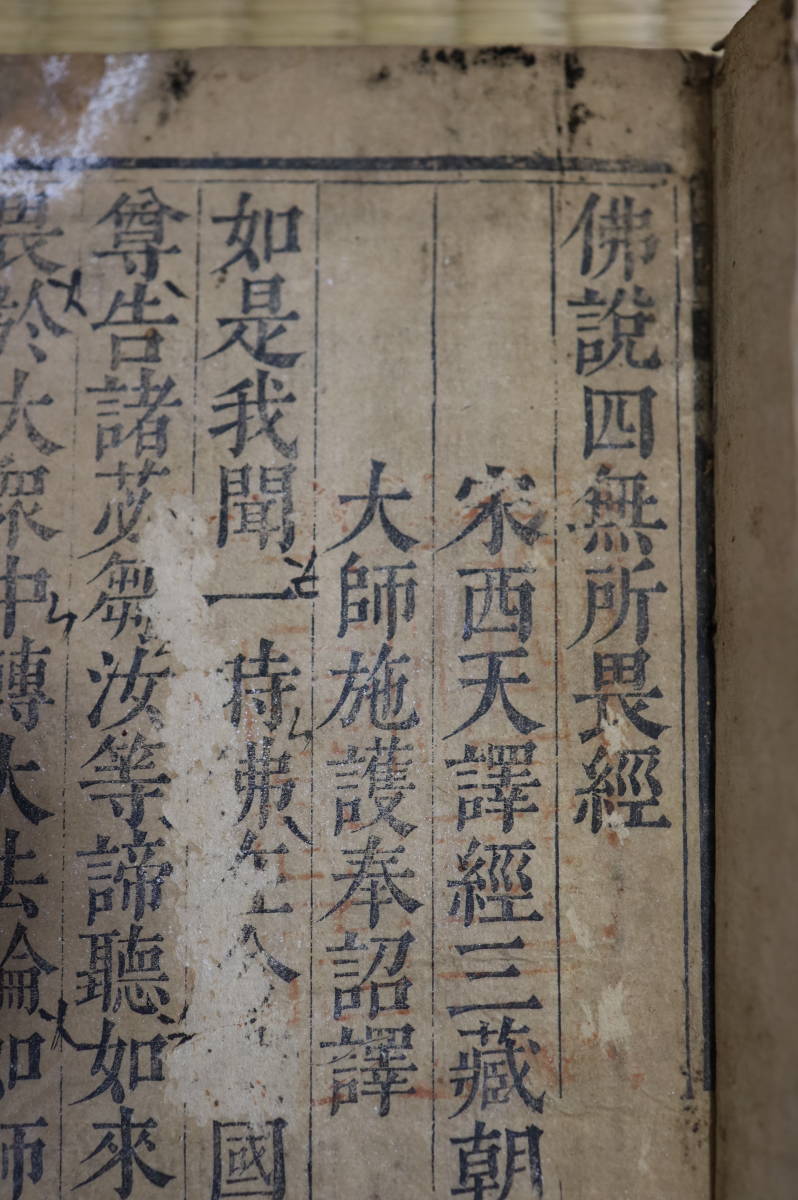 佛說四無所畏經
宋西天譯經三藏朝
大師施護奉詔譯
如是我聞一時佛在舍國
尊告諸苾芻汝等諦聽如來
畏於大眾中轉大法輪如師